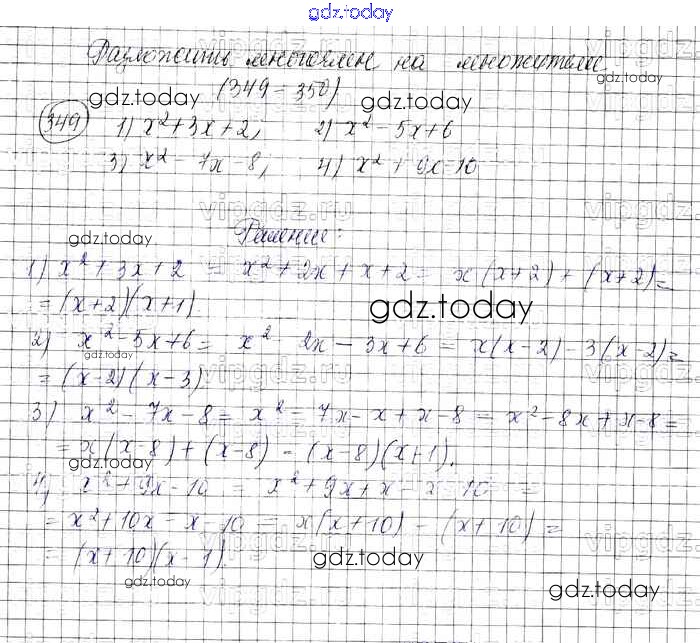 gdz.today
Разложить многочлен на множители
gdz.today
gdz.today (349 – 350) gdz.today
349 1) x² + 3x + 2, 2) x² – 5x + 6
3) x² – 7x – 8, 4) x² + 9x – 10
vipgdz.ru
gdz.today Решение:
1) x² + 3x + 2 = x² + 2x + x + 2 = x(x+2) + (x+2) =
= (x+2)(x+1)
gdz.today
2) x² – 5x + 6 = x² – 2x – 3x + 6 = x(x–2) – 3(x–2) =
gdz.today
= (x–2)(x–3)
vipgdz.ru
3) x² – 7x – 8 = x² – 7x – x + x – 8 = x² – 8x + x – 8 =
= x(x–8) + (x–8) = (x–8)(x+1).
gdz.today
4) x² + 9x – 10 = x² + 9x + x – x – 10 =
= x² + 10x – x – 10 = x(x+10) – (x+10) =
= (x+10)(x–1)
gdz.today
gdz.today
gdz.today